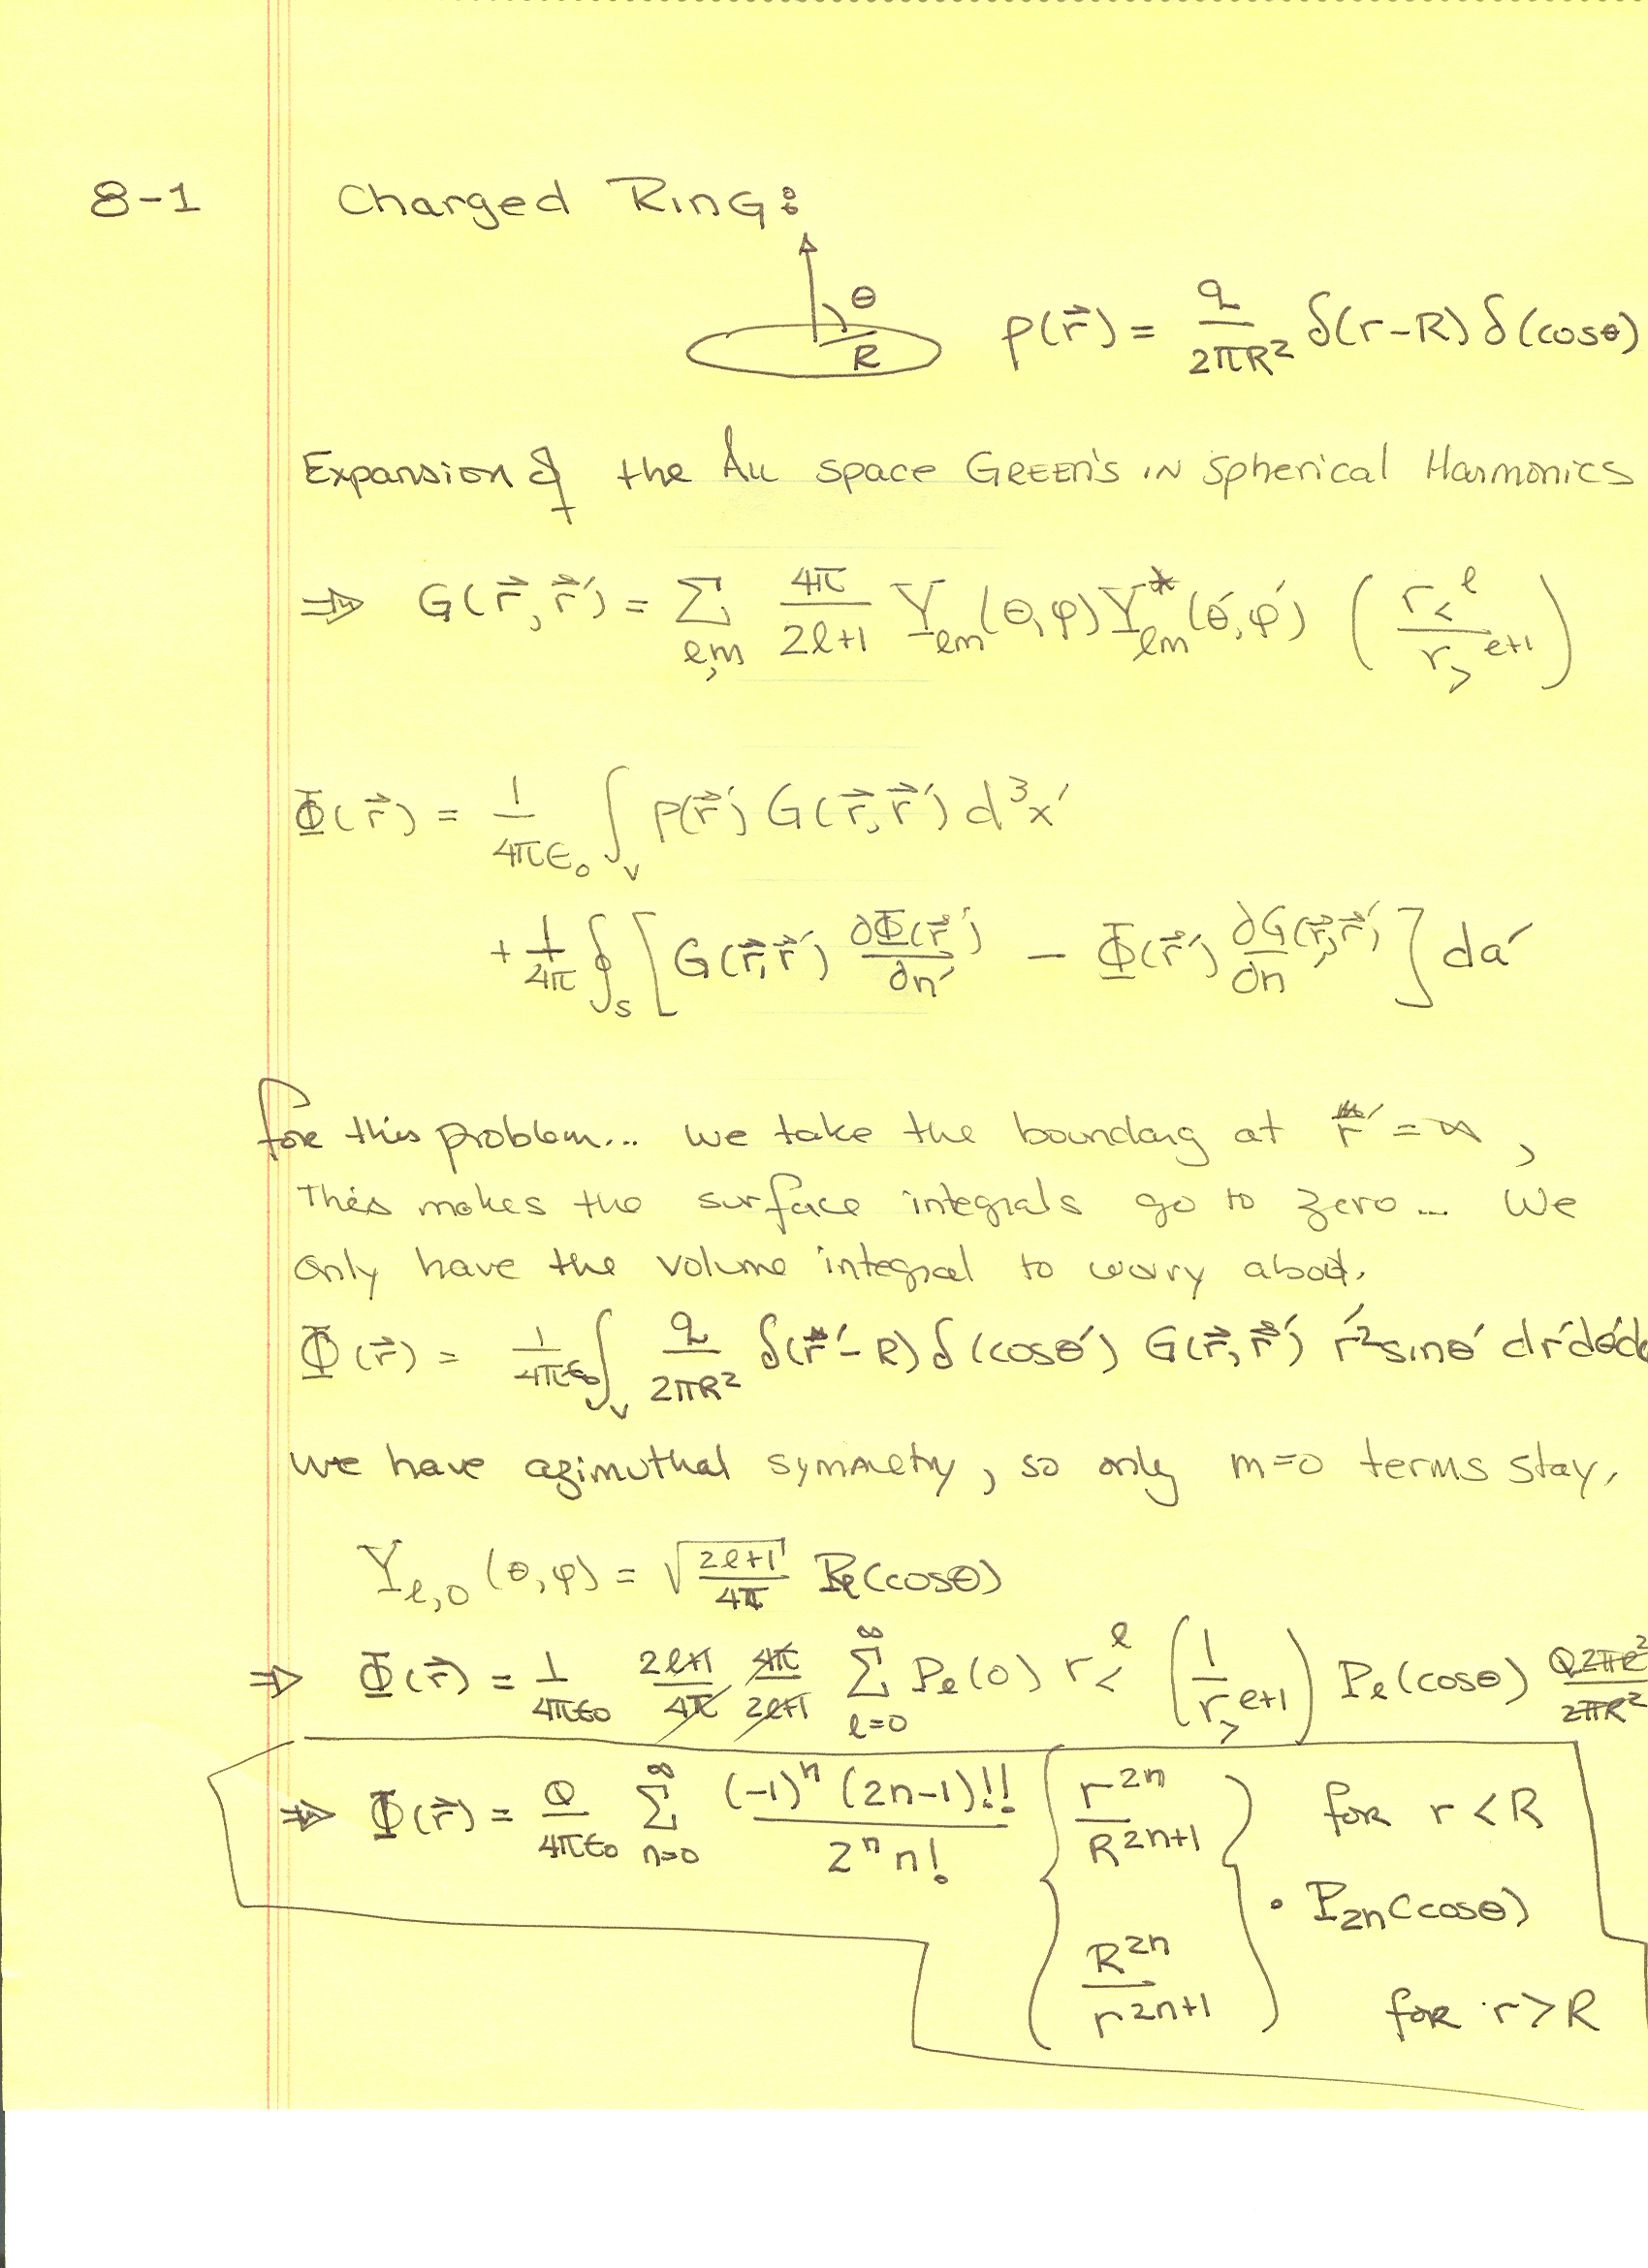 8-1 Charged Ring:
θ
R
ρ(r⃗) = q/2πR² δ(r-R) δ(cosθ)
Expansion of the All space GREEN'S IN Spherical Harmonics
⇒ G(r⃗, r⃗′) = Σ_{l,m} 4π/2l+1 Y_{lm}(θ,φ) Y*_{lm}(θ′,φ′) (r_<^l / r_>^{l+1})
Φ(r⃗) = 1/4πε₀ ∫_V ρ(r⃗′) G(r⃗, r⃗′) d³x′
+ 1/4π ∮_S [G(r⃗,r⃗′) ∂Φ(r⃗′)/∂n′ − Φ(r⃗′) ∂G(r⃗,r⃗′)/∂n] da′
for this problem... we take the boundary at r′ = ∞,
This makes the surface integrals go to zero... We
only have the volume integral to worry about.
Φ(r⃗) = 1/4πε₀ ∫_V q/2πR² δ(r′-R) δ(cosθ′) G(r⃗, r⃗′) r′² sinθ′ dr′dθ′d
we have azimuthal symmetry, so only m=0 terms stay.
Y_{l,0}(θ,φ) = √(2l+1/4π) P_l(cosθ)
⇒ Φ(r⃗) = 1/4πε₀ 2l+1/4π 4π/2l+1 Σ_{l=0}^{∞} P_l(0) r_<^l (1/r_>^{l+1}) P_l(cosθ) Q2πR²/2πR²
⇒ Φ(r⃗) = Q/4πε₀ Σ_{n=0}^{∞} (-1)^n (2n-1)!!/2^n n! { r^{2n}/R^{2n+1} } for r < R
· P_{2n}(cosθ)
R^{2n}/r^{2n+1} for r > R